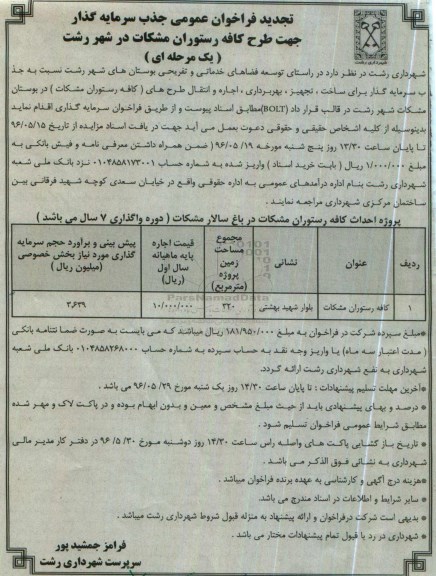 تجدید فراخوان عمومی جذب سرمایه گذار
جهت طرح کافه رستوران مشکات در شهر رشت
( یک مرحله ای )
شهرداری رشت در نظر دارد در راستای توسعه فضاهای خدماتی و تفریحی بوستان های شهر رشت نسبت به جذ
ب سرمایه گذار برای ساخت ، تجهیز ، بهره برداری ، اجاره و انتقال طرح های ( کافه رستوران مشکات ) در بوستان
مشکات شهر رشت در قالب قرار داد (BOLT) مطابق اسناد پیوست و از طریق فراخوان سرمایه گذاری اقدام نماید
بدینوسیله از کلیه اشخاص حقیقی و حقوقی دعوت بعمل می آید جهت در یافت اسناد مزایده از تاریخ ۹۶/۰۵/۱۵
تا پایان ساعت ۱۳/۳۰ روز پنج شنبه مورخه ۹۶/۰۵/۱۹ ( ضمن همراه داشتن معرفی نامه و فیش بانکی به
مبلغ ۱/۰۰۰/۰۰۰ ریال ( بابت خرید اسناد ) واریز شده به شماره حساب ۰۱۰۴۸۵۸۱۷۳۰۰۱ نزد بانک ملی شعبه
شهرداری رشت بنام اداره درآمدهای عمومی به اداره حقوقی واقع در خیابان سعدی کوچه شهید فرقانی بین
ساختمان مرکزی شهرداری مراجعه نمایند .
پروژه احداث کافه رستوران مشکات در باغ سالار مشکات ( دوره واگذاری ۷ سال می باشد )
ردیف | عنوان | نشانی | مجموع مساحت زمین پروژه (مترمربع) | قیمت اجاره پایه ماهیانه سال اول (ریال) | پیش بینی و برآورد حجم سرمایه گذاری مورد نیاز بخش خصوصی (میلیون ریال )
۱ | کافه رستوران مشکات | بلوار شهید بهشتی | ۳۲۰ | ۱۰/۰۰۰/۰۰۰ | ۳,۶۳۹
*مبلغ سپرده شرکت در فراخوان به مبلغ ۱۸۱/۹۵۰/۰۰۰ ریال میباشد که می بایست به صورت ضمانتنامه بانکی
( مدت اعتبار سه ماه ) یا واریز وجه نقد به حساب سپرده به شماره حساب ۰۱۰۴۸۵۸۲۶۸۰۰۰ بانک ملی شعبه
شهرداری به نفع شهرداری رشت ارائه گردد.
*آخرین مهلت تسلیم پیشنهادات : تا پایان ساعت ۱۴/۳۰ روز یک شنبه مورخ ۹۶/۰۵/۲۹ می باشد .
* درصد و بهای پیشنهادی باید از حیث مبلغ مشخص و معین و بدون ابهام بوده و در پاکت لاک و مهر شده
مطابق شرایط عمومی فراخوان تسلیم شود .
* تاریخ باز گشایی پاکت های واصله راس ساعت ۱۴/۳۰ روز دوشنبه مورخ ۹۶/۵/۳۰ در دفتر کار مدیر مالی
شهرداری به نشانی فوق الذکر می باشد .
*هزینه درج آگهی و کارشناسی به عهده برنده فراخوان میباشد .
* سایر شرایط و اطلاعات در اسناد مندرج می باشد.
* بدیهی است شرکت درفراخوان و ارائه پیشنهاد به منزله قبول شروط شهرداری رشت میباشد .
* شهرداری در رد یا قبول تمام پیشنهادات مختار می باشد .
فرامز جمشید پور
سرپرست شهرداری رشت